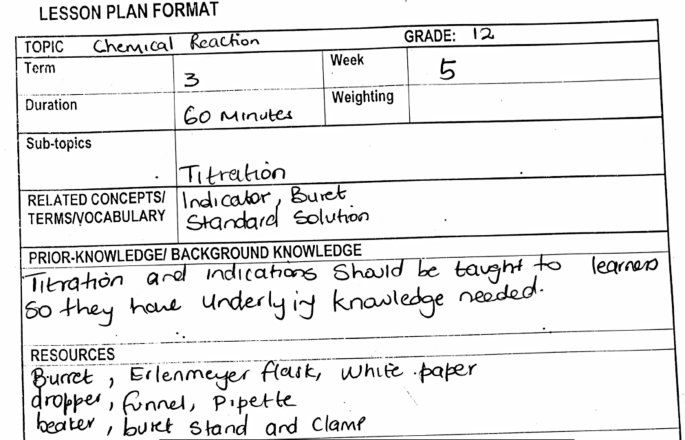 LESSON PLAN FORMAT
TOPIC Chemical Reaction GRADE: 12
Term 3 Week 5
Duration 60 Minutes Weighting
Sub-topics
Titration
RELATED CONCEPTS/ Indicator, Buret
TERMS/VOCABULARY Standard Solution
PRIOR-KNOWLEDGE/ BACKGROUND KNOWLEDGE
Titration and indications should be taught to learners
So they have underlying knowledge needed.
RESOURCES
Burret, Erlenmeyer flask, white paper
dropper, funnel, Pipette
beaker, buret stand and clamp